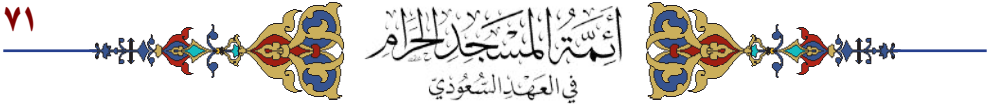 ٧١
أئمة المسجد الحرام
في العهد السعودي